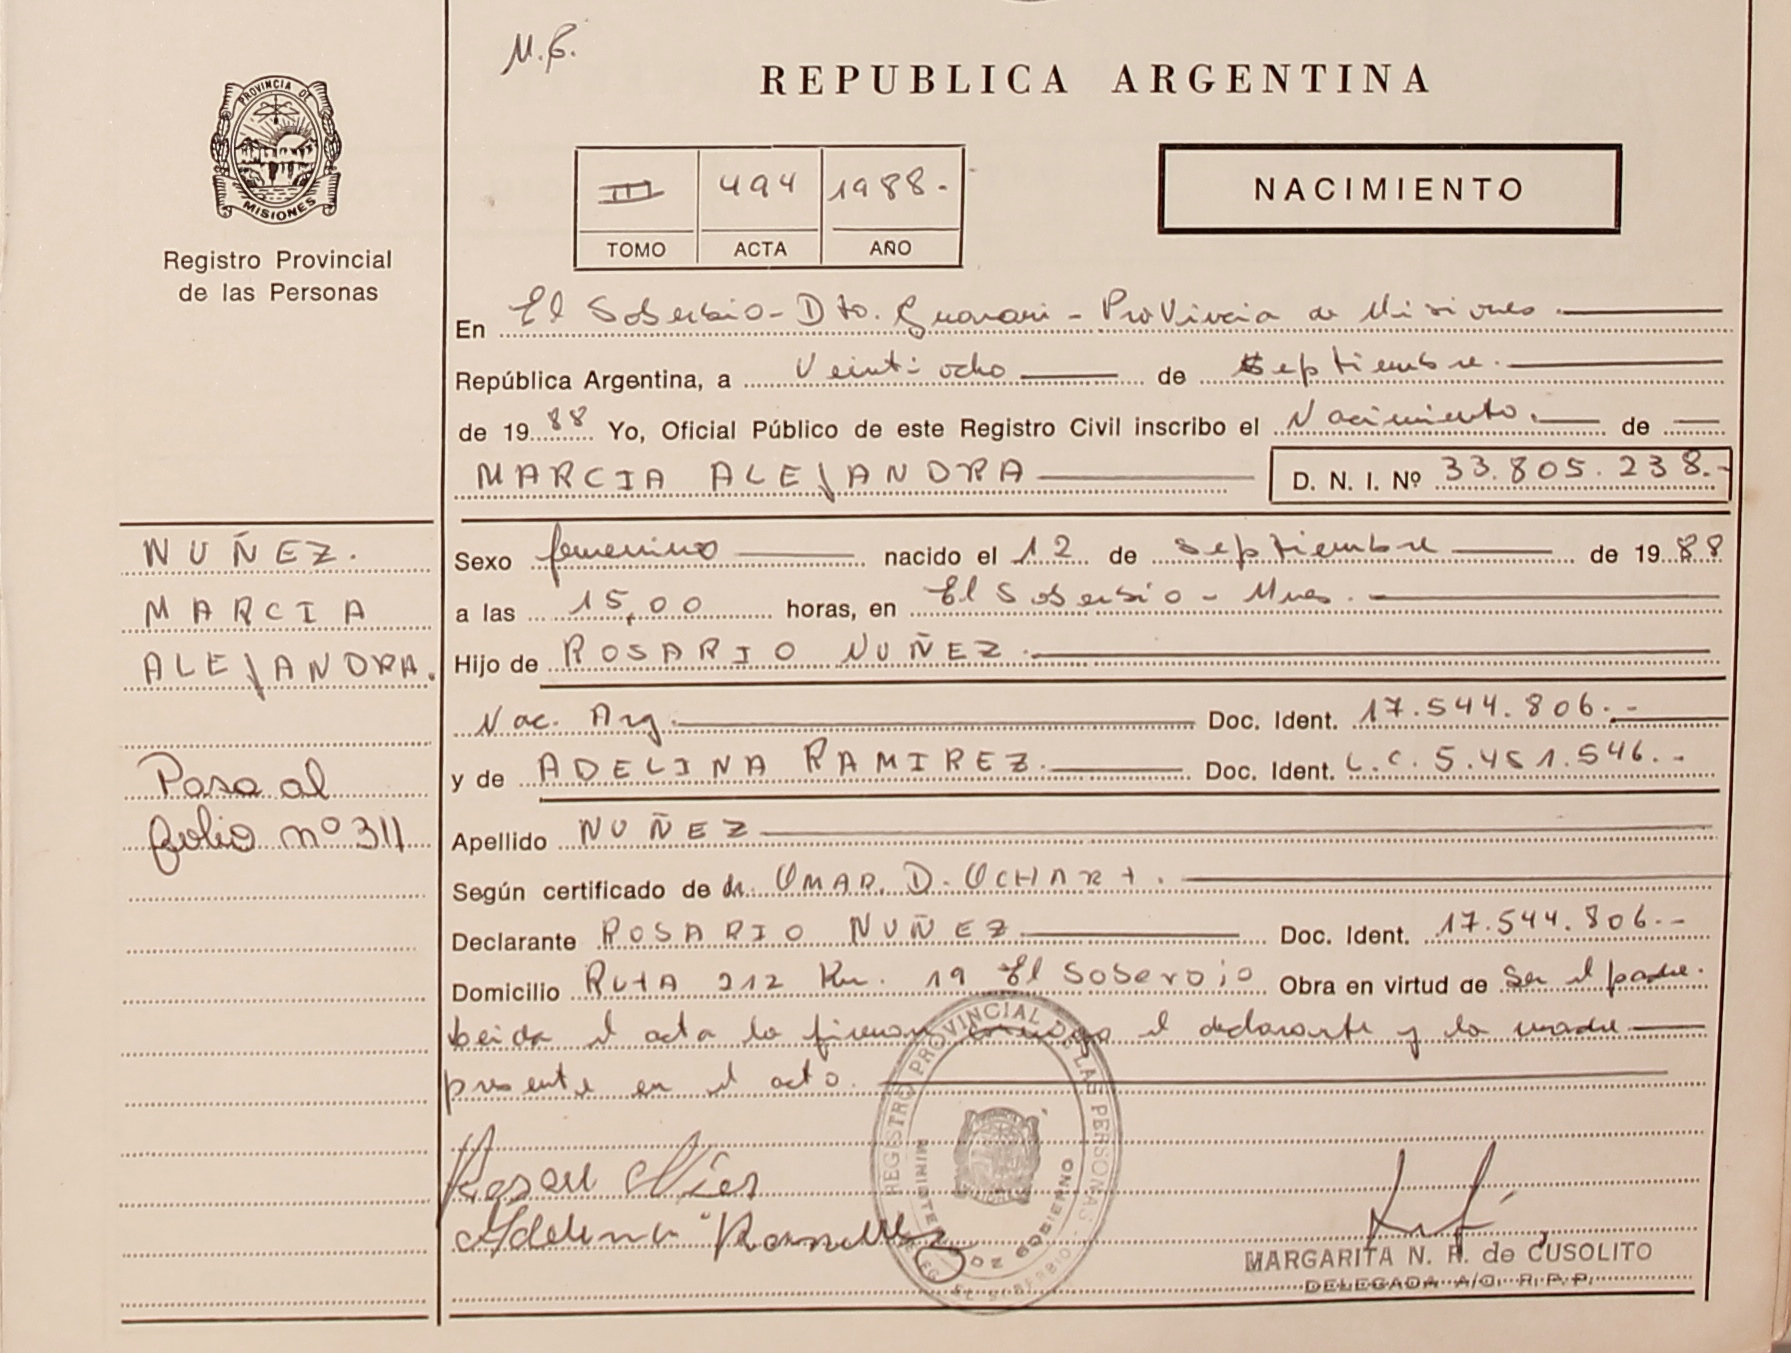 M.G.
REPUBLICA ARGENTINA
PROVINCIA DE
MISIONES
Registro Provincial
de las Personas
III 494 1988.-
TOMO ACTA AÑO
NACIMIENTO
En El Soberbio - Dto. Guarani - Provincia de Misiones
República Argentina, a Veintiocho de Septiembre.
de 1988 Yo, Oficial Público de este Registro Civil inscribo el Nacimiento. de
MARCIA ALEJANDRA D. N. I. Nº 33.805.238.-
NUÑEZ.
MARCIA
ALEJANDRA.
Pasa al
folio nº 311
Sexo femenino nacido el 12 de Septiembre de 1988
a las 15,00 horas, en El Soberbio - Mnes.
Hijo de ROSARIO NUÑEZ
Nac. Arg. Doc. Ident. 17.544.806.-
y de ADELINA RAMIREZ Doc. Ident. L.C. 5.451.546.-
Apellido NUÑEZ
Según certificado de dr. OMAR D. OCHART.
Declarante ROSARIO NUÑEZ Doc. Ident. 17.544.806.-
Domicilio RUTA 212 Km. 19 El Soberbio Obra en virtud de Ser el padre.
Leida el acta la firman conmigo el declarante y la madre
presente en el acto.
REGISTRO PROVINCIAL DE LAS PERSONAS
MINISTERIO DE GOBIERNO
Adelina Ramirez
MARGARITA N. R. de CUSOLITO
DELEGADA A/C. R.P.P.